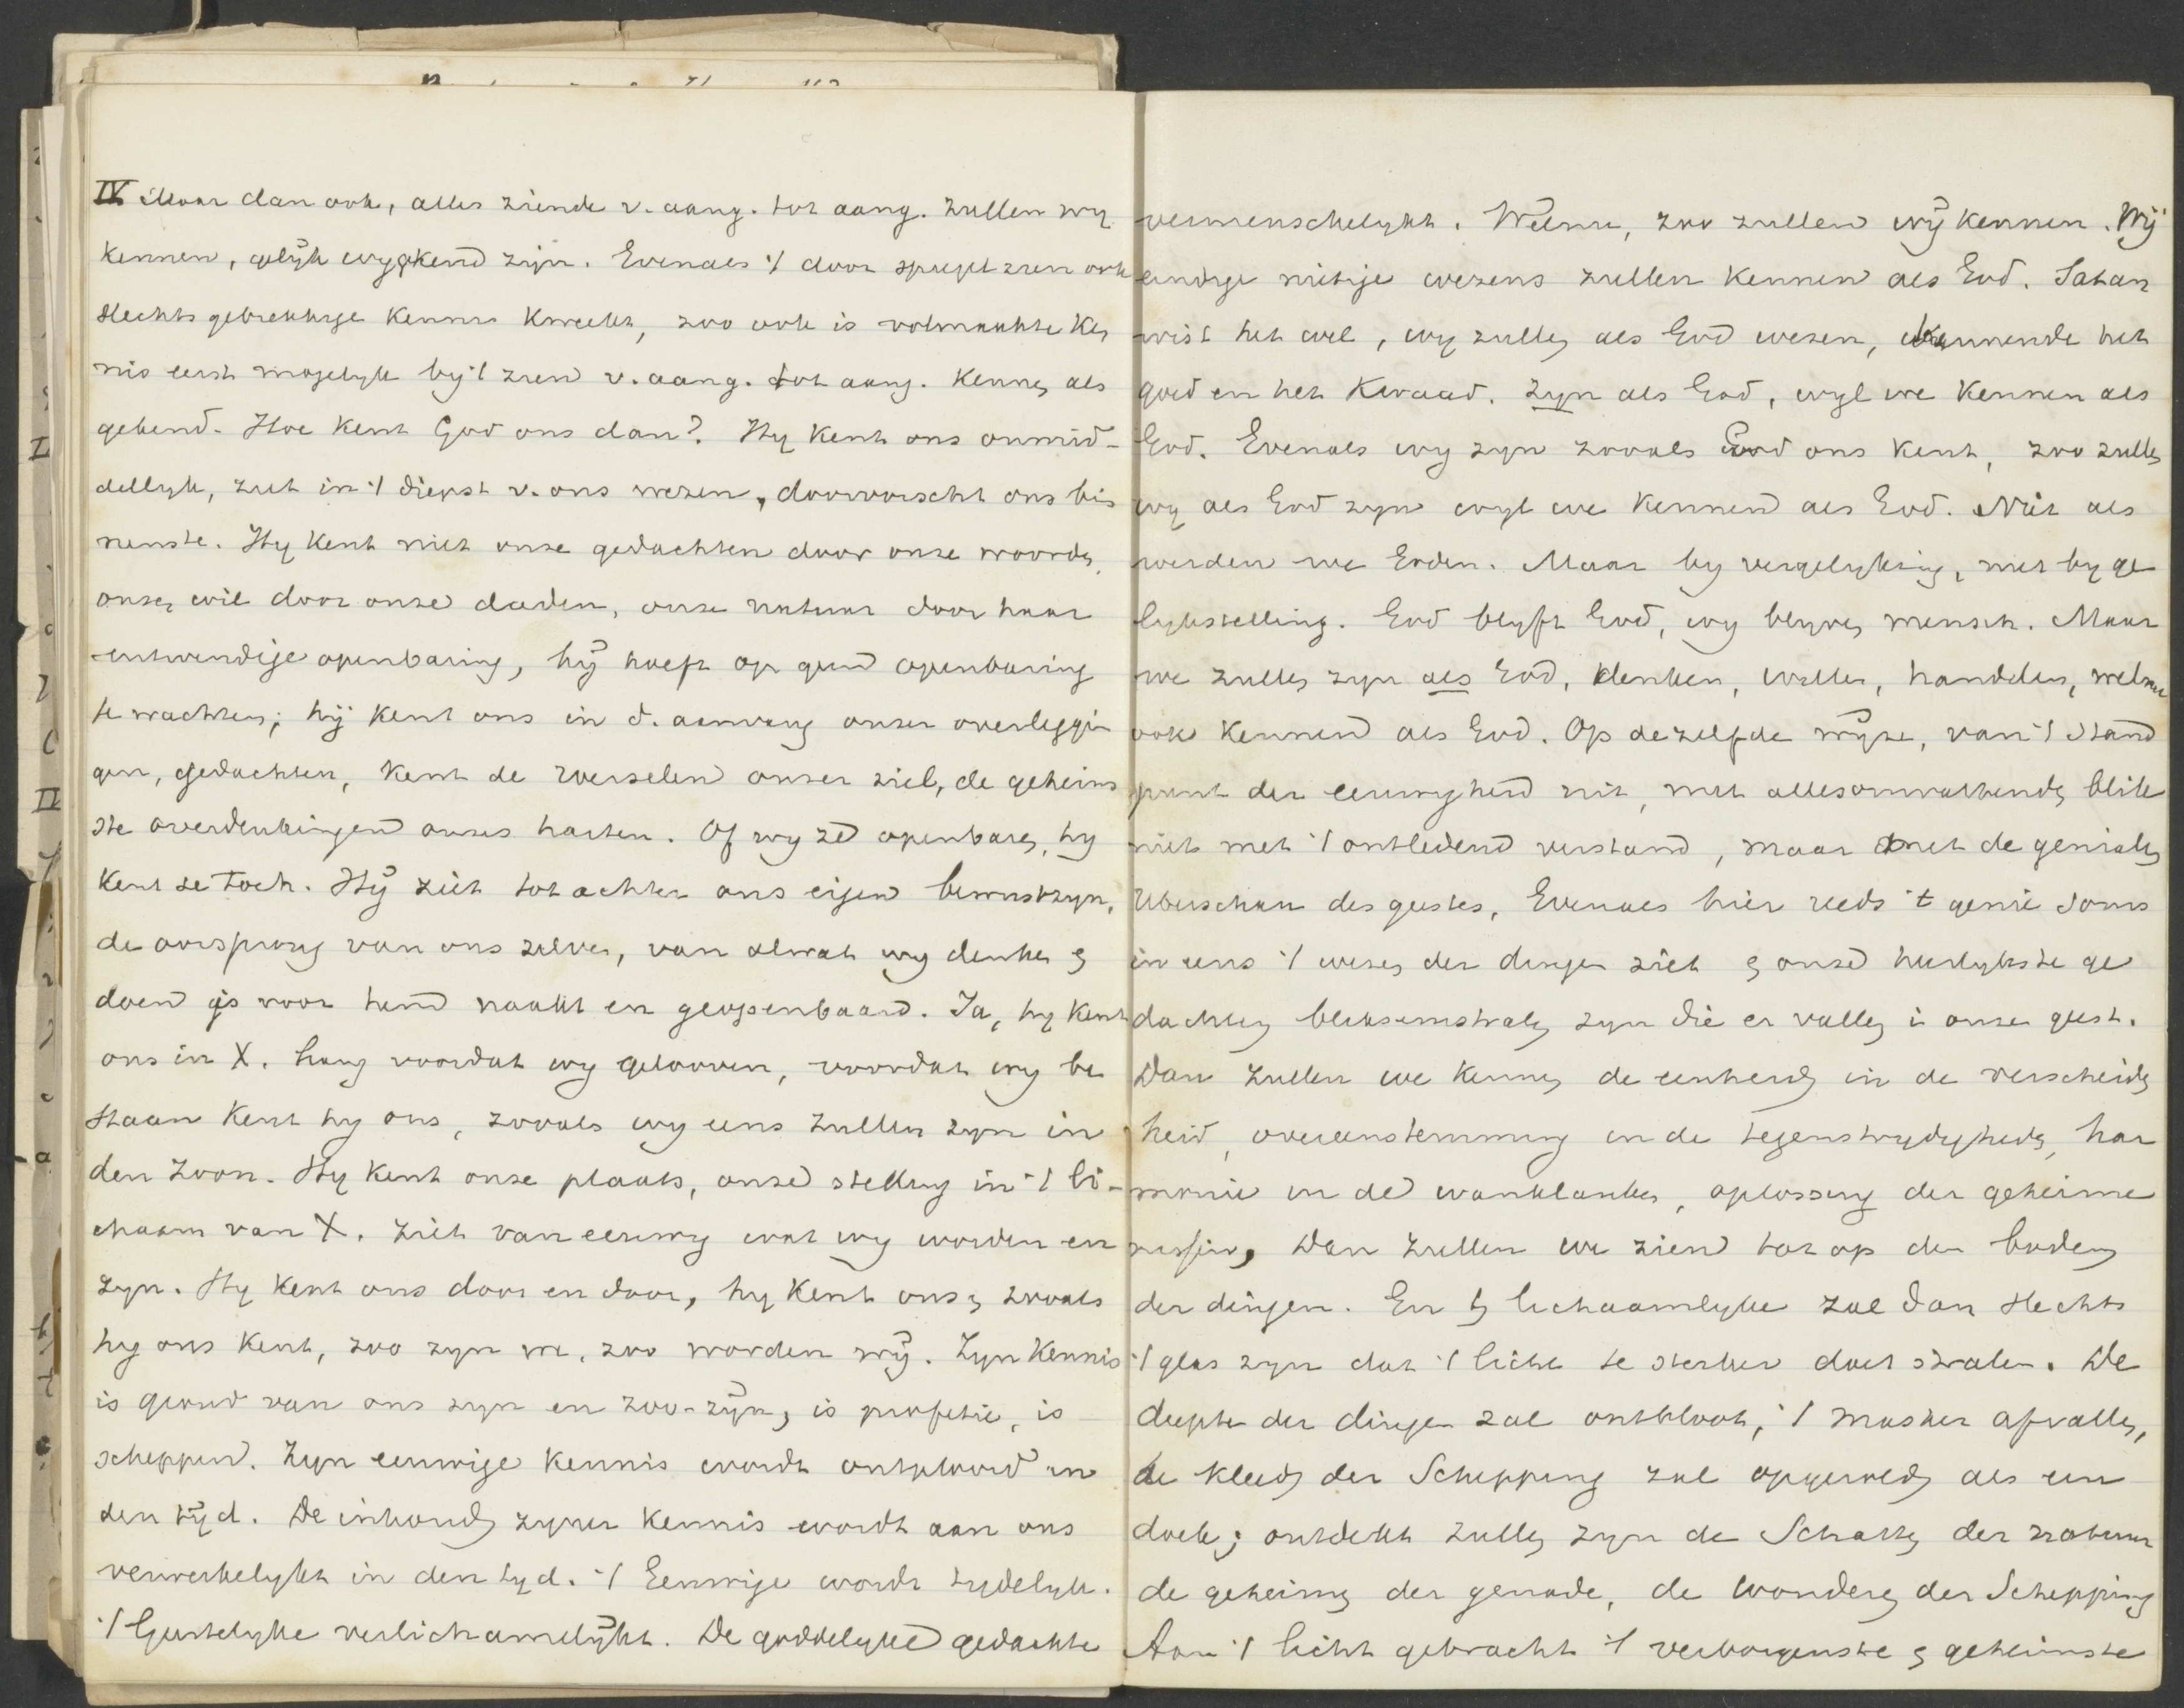 IV. Maar dan ook, alles ziende v. aang. tot aang. zullen wy
kennen, gelijk wy gekend zijn. Evenals 't door spiegel zien ook
slechts gebrekkige kennis kweekt, zoo ook is volmaakte ken
nis eerst mogelyk by 't zien v. aang. tot aang. Kennen als
gekend. Hoe kent God ons dan? Hy kent ons onmid-
dellyk, ziet in 't diepst v. ons wezen, doorvorscht ons bin
nenste. Hy kent niet onze gedachten door onze woorden,
onzen wil door onze daden, onze natuur door haar
uitwendige openbaring, hij hoeft op geen openbaring
te wachten; hij kent ons in d. aanvang onzer overleggin
gen, gedachten, kent de wortelen onzer ziel, de geheim
ste overdenkingen onzes harten. Of wy ze openbaren, hy
kent ze toch. Hij ziet tot achter ons eigen bewustzyn,
de oorsprong van ons zelven, van alwat wy denken en
doen is voor hem naakt en geopenbaard. Ja, hy kent
ons in X. Lang voordat wy gelooven, voordat wy be
staan kent hy ons, zooals wy eens zullen zyn in
den Zoon. Hy kent onze plaats, onze stelling in 't li-
chaam van X. Ziet van eeuwig wat wy worden en
zyn. Hy kent ons door en door, hy kent ons en zooals
hy ons kent, zoo zyn we, zoo worden wij. Zyn kennis
is grond van ons zyn en zoo-zijn, is profetie, is
scheppend. Zyn eeuwige kennis wordt ontplooid in
den tijd. De inhoud zyner kennis wordt aan ons
verwerkelykt in den tyd. 't Eeuwige wordt tydelyk.
't Geestelyke verlichamelijkt. De goddelyke gedachte
vermenschelykt. Welnu, zoo zullen wij kennen. Wij
eindige nietige wezens zullen kennen als God. Satan
wist het wel, wy zullen als God wezen, kennende het
goed en het kwaad. Zyn als God, wyl we kennen als
God. Evenals wy zyn zooals God ons kent, zoo zullen
wy als God zyn wyl we kennen als God. Niet als
werden we Goden. Maar by vergelyking, niet by ge
lykstelling. God blyft God, wy blyven mensch. Maar
we zullen zyn als God, denken, willen, handelen, welnu
ook kennen als God. Op dezelfde wijze, van 't stand
punt der eeuwigheid uit, met allesomvattenden blik
niet met 't ontledend verstand, maar met de geniale
Uberschau des geestes, Evenals hier reeds 't genie soms
in eens 't wezen der dingen ziet en onze heerlykste ge
dachten bliksemstralen zyn die er vallen in onze geest.
Dan zullen we kennen de eenheid in de verscheiden
heid, overeenstemming in de tegenstrydigheden, har
monie in de wanklanken, oplossing der geheime
nissen, Dan zullen we zien tot op den bodem
der dingen. En 't lichaamlyke zal dan slechts
't glas zyn dat 't licht te sterker doet stralen. De
diepte der dingen zal ontbloot, 't masker afvallen,
de kleed der Schepping zal opgerold als een
doek; ontdekt zullen zyn de Schatten der natuur
de geheimen der genade, de wonderen der Schepping
Aan 't licht gebracht 't verborgenste en geheimste